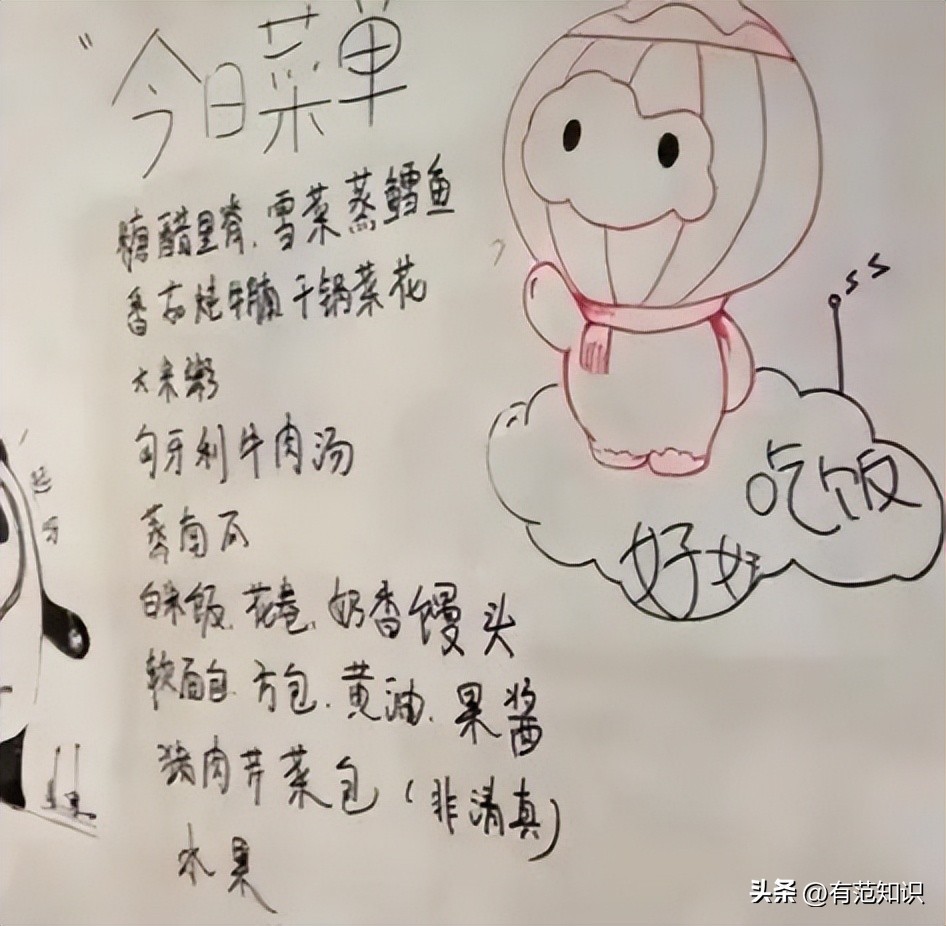 "今日菜单
糖醋里脊、雪菜蒸鳕鱼
番茄炖牛腩 干锅菜花
大米粥
匈牙利牛肉汤
蒸南瓜
白米饭、花卷、奶香馒头
软面包、方包、黄油、果酱
猪肉芹菜包(非清真)
水果
ss
吃饭
好好
头条 @有范知识